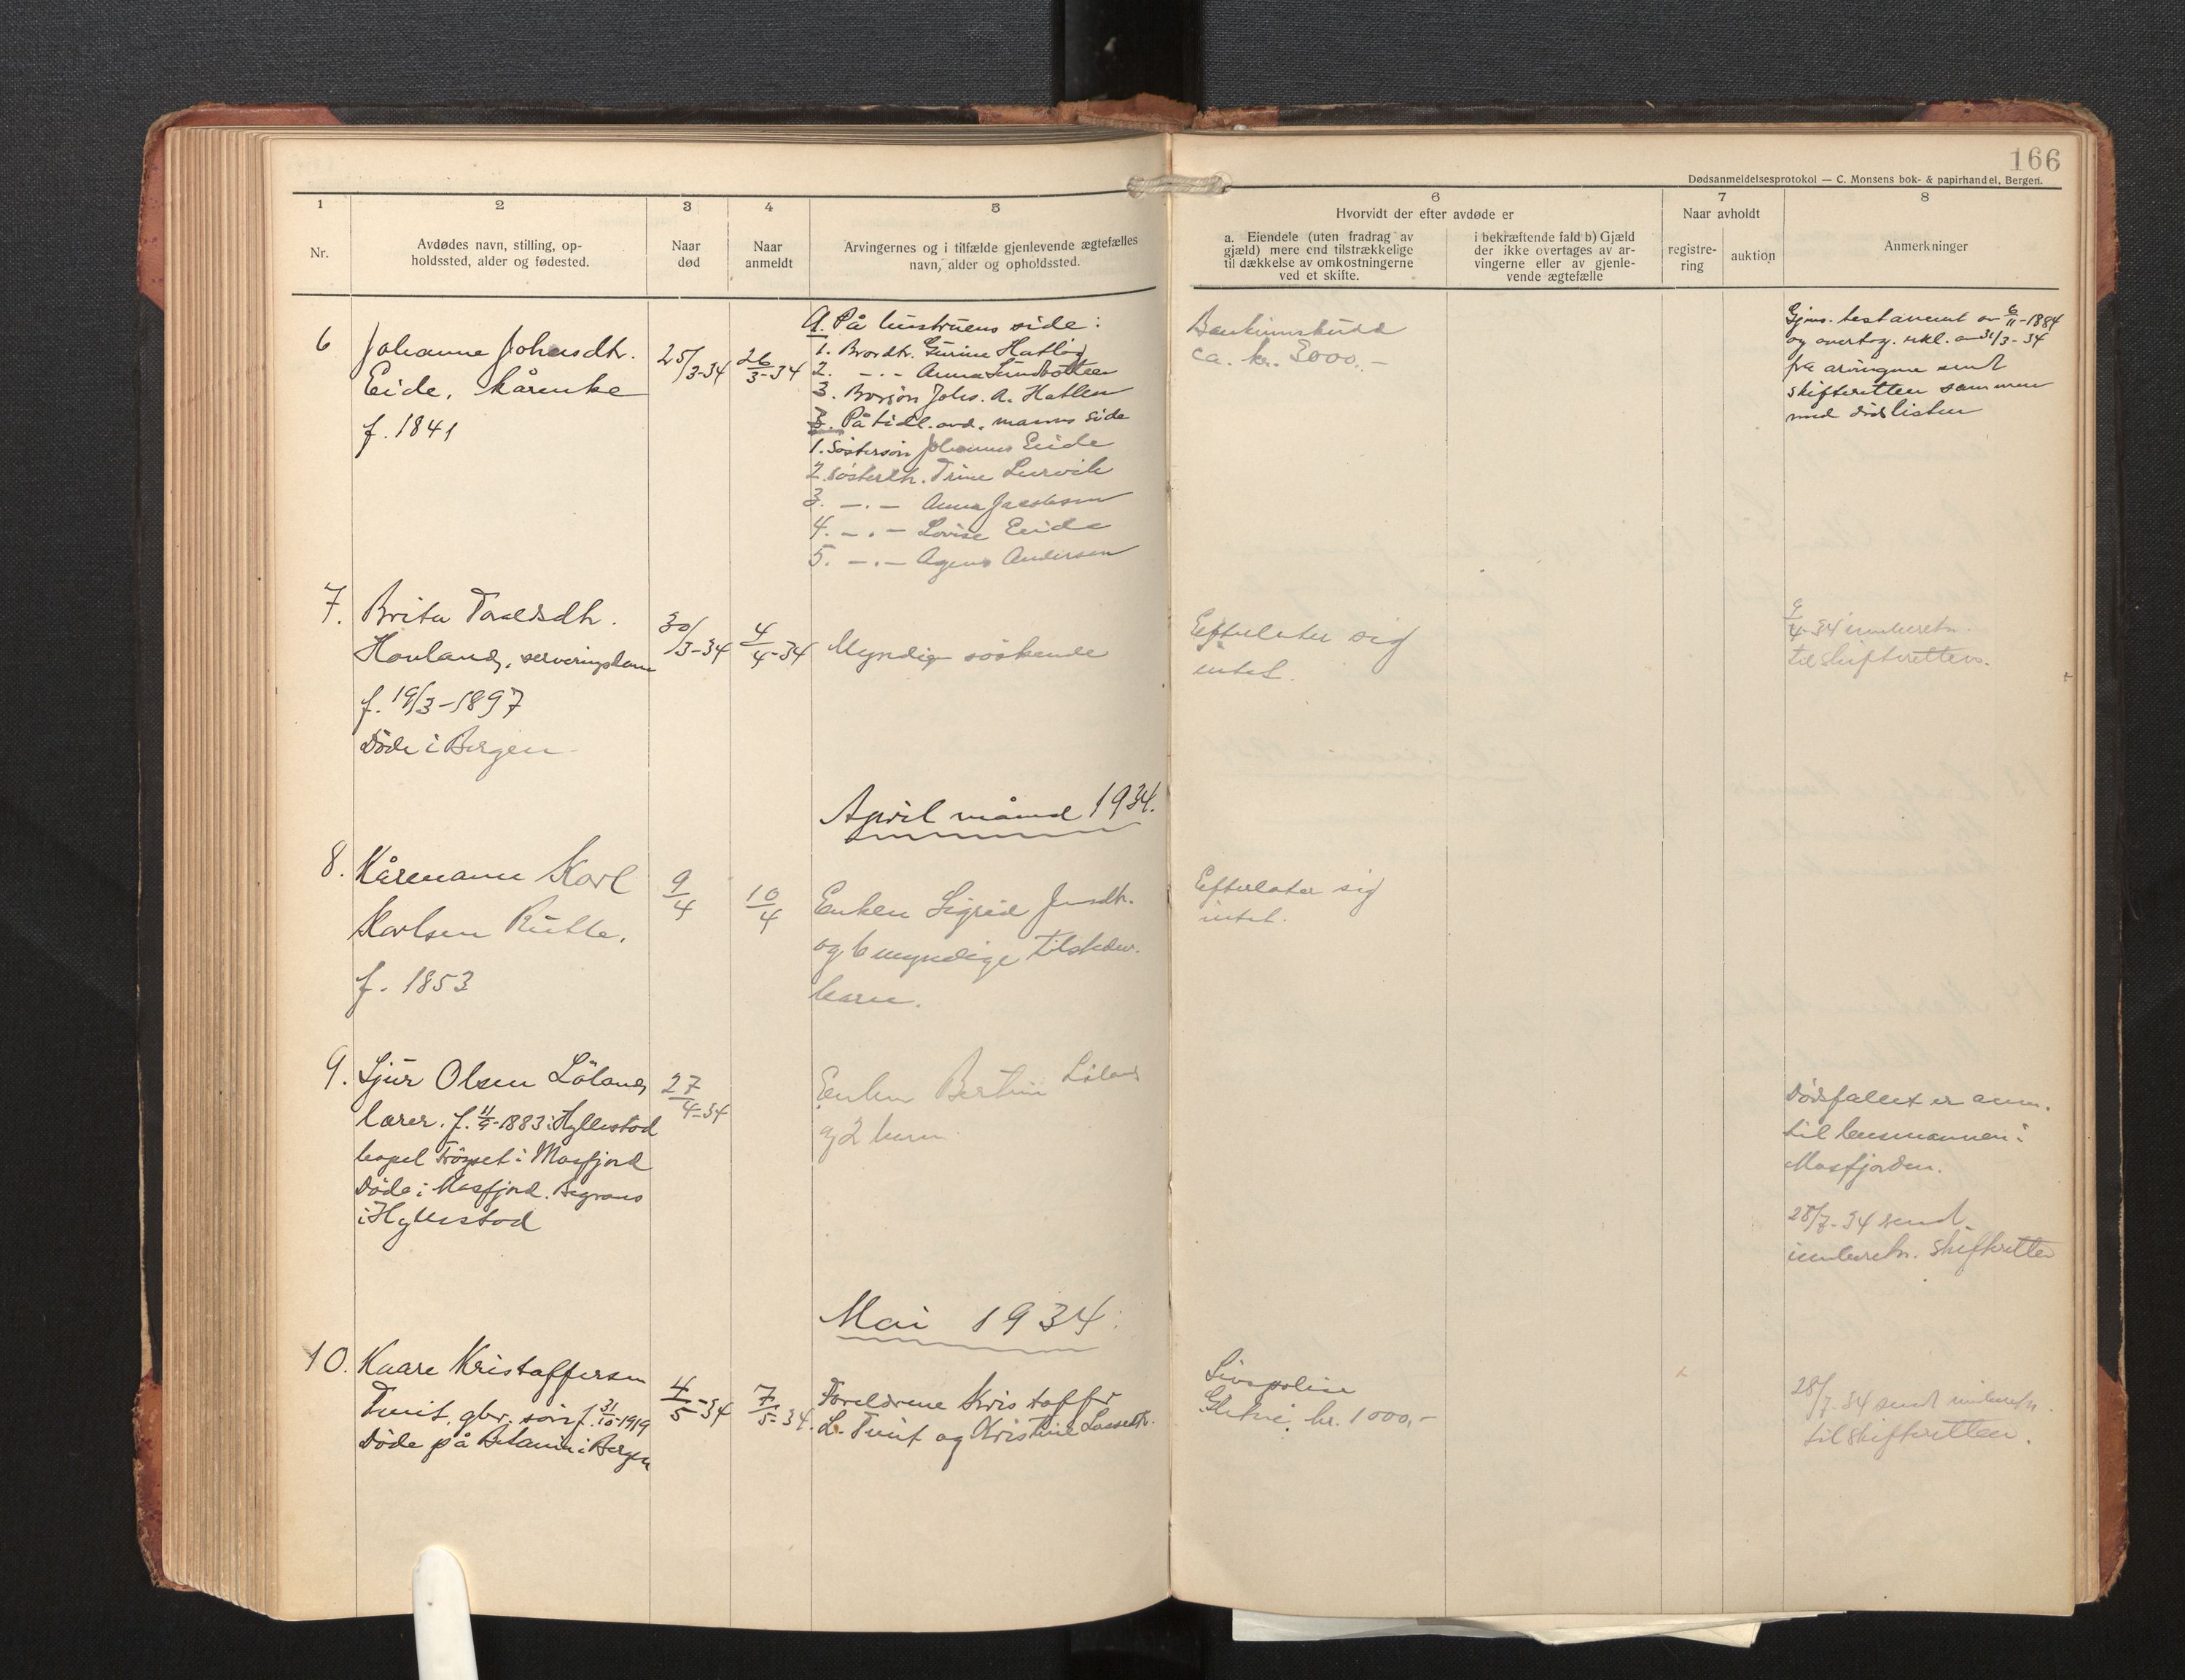 166
Dødsanmeldelsesprotokol — C. Monsens bok- & papirhandel, Bergen.
1
2
3
4
5
6
7
8
Nr.
Avdødes navn, stilling, op-
holdssted, alder og fødested.
Naar
død
Naar
anmeldt
Arvingernes og i tilfælde gjenlevende ægtefælles
navn, alder og opholdssted.
Hvorvidt der efter avdøde er
a. Eiendele (uten fradrag av
gjæld) mere end tilstrækkelige
til dækkelse av omkostningerne
ved et skifte.
i bekræftende fald b) Gjæld
der ikke overtages av ar-
vingerne eller av gjenle-
vende ægtefælle
Naar avholdt
registre-
ring
auktion
Anmerkninger
6
Johanne Johansdtr.
Eide, kårenke
f. 1841
25/3-34
26/3-34
A. På hustruens side:
1. Brordtr. Gurine Hatløy
2. —.— Anna
3. Brorsøn Johs. A. Hatlem
B. På tidl. avd. manns side
1. Søstersøn Johannes Eide
2. søsterdtr. Trine Leirvik
3. —.— Anna Jacobsen
4. —.— Lovise Eide
5. —.— Agens Andersen
Bankinnskudd
ca. kr. 3000.-
Gjens. testament av 6/11-1884
og overtag. erkl. av 31/3-34
fra arvingene sendt
skifteretten sammen
med dødslisten
7.
Brita Toreldsdtr.
Hovland, serveringsdame
f. 19/3-1897
Døde i Bergen
30/3-34
4/4-34
Myndige søskende
Efterlater sig
intet.
9/4-34 innberetn.
til skifteretten.
April måned 1934.
8.
Kåremann Karl
Karlsen Rutle.
f. 1853
9/4
10/4
Enken Sigrid Jensdtr.
og 6 myndige
barn.
Efterlater sig
intet.
9.
Sjur Olsen Løland
lærer. f. 1883 i Hyllestad
bopel i Masfjord
Døde i Masfjord. Begraves
i Hyllestad
27/4-34
Enken Løland
og 2 barn
Dødsfallet er anm.
til lensmannen i
Masfjorden.
28/7-34 sendt
innberetn. skifteretten
Mai 1934.
10.
Kaare Kristoffersen
Tveit, gbr. søn f. 31/10-1919
Døde på Betanien i Bergen
4/5-34
7/5-34.
Foreldrene Kristoffer
L. Tveit og Kristine Lassedtr.
Livspolise
kr. 1000,-
28/7-34 sendt innberetn.
til skifteretten.